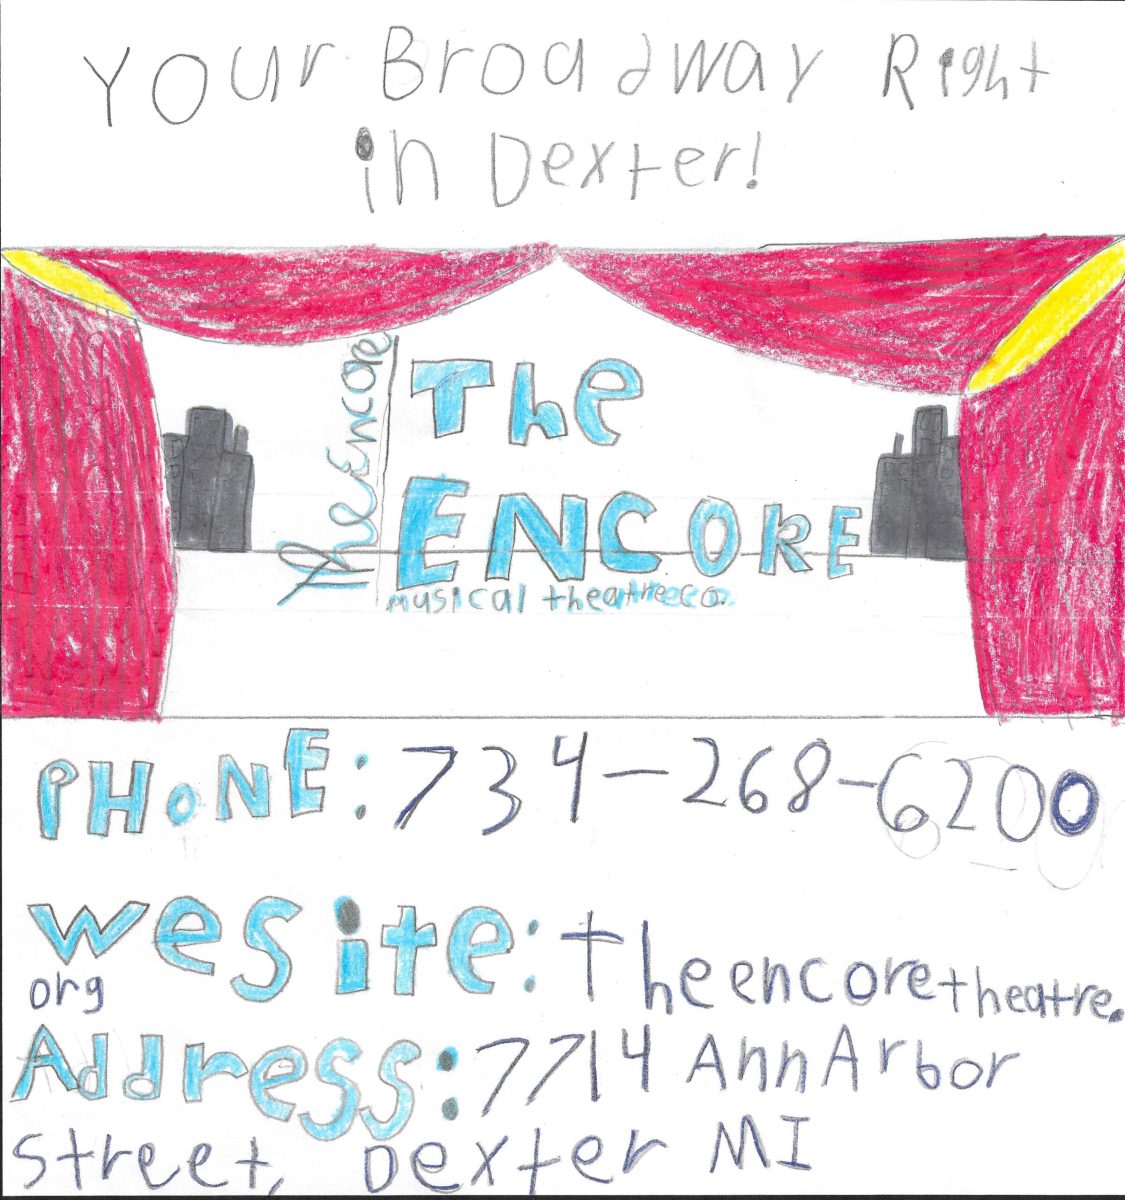 Your Broadway Right
in Dexter!
The Encore
The
ENCORE
musical theatre co.
PHONE: 734-268-6200
wesite: Theencoretheatre.
org
Address: 7714 Ann Arbor
Street, Dexter MI